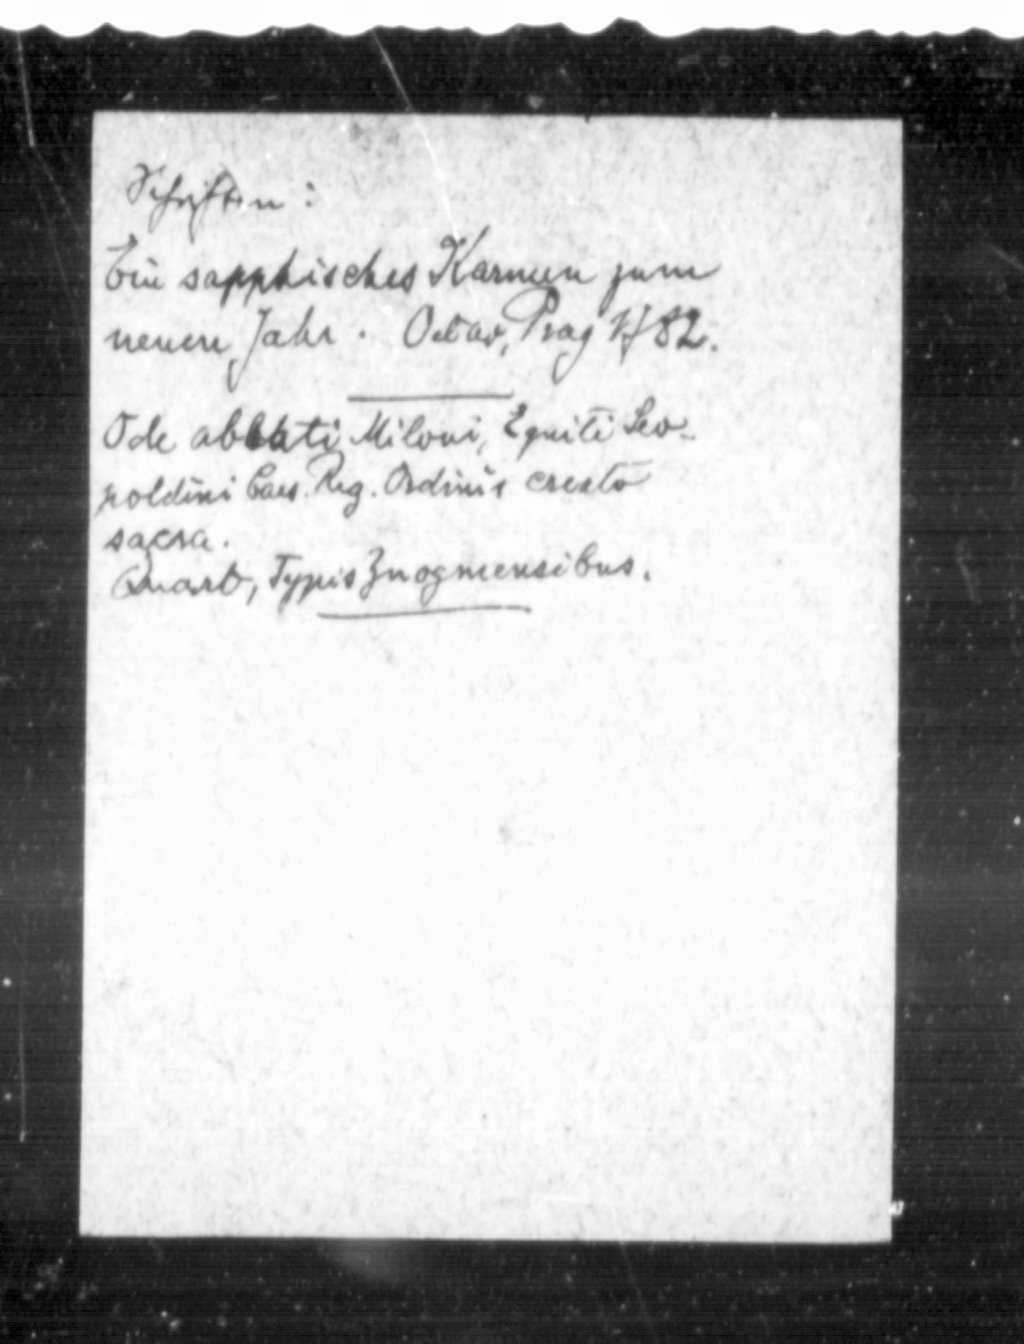 Schriften:
Ein sapphisches Karmen zum
neuen Jahr. Octav, Prag 1782.
Ode abbati Miloni, Equiti Leo-
poldini Caes. Reg. Ordinis creato
sacra.
Quart, Typis Znogmensibus.